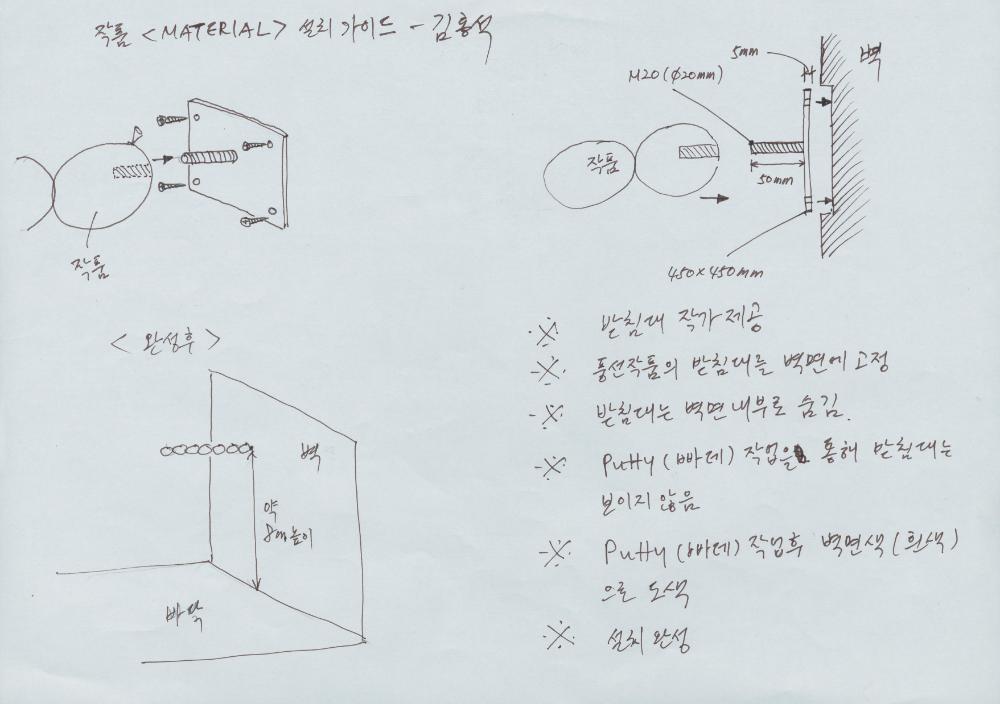 작품 <MATERIAL> 설치 가이드 - 김홍석
5mm
벽
M20 (φ20mm)
작품
50mm
작품
450×450mm
<완성후>
벽
약
8m높이
바닥
※ 받침대 작가 제공
※ 풍선작품의 받침대를 벽면에 고정
※ 받침대는 벽면 내부로 숨김.
※ Putty (빠데) 작업을 통해 받침대는
보이지 않음
※ Putty (빠데) 작업후 벽면색 (흰색)
으로 도색
※ 설치 완성